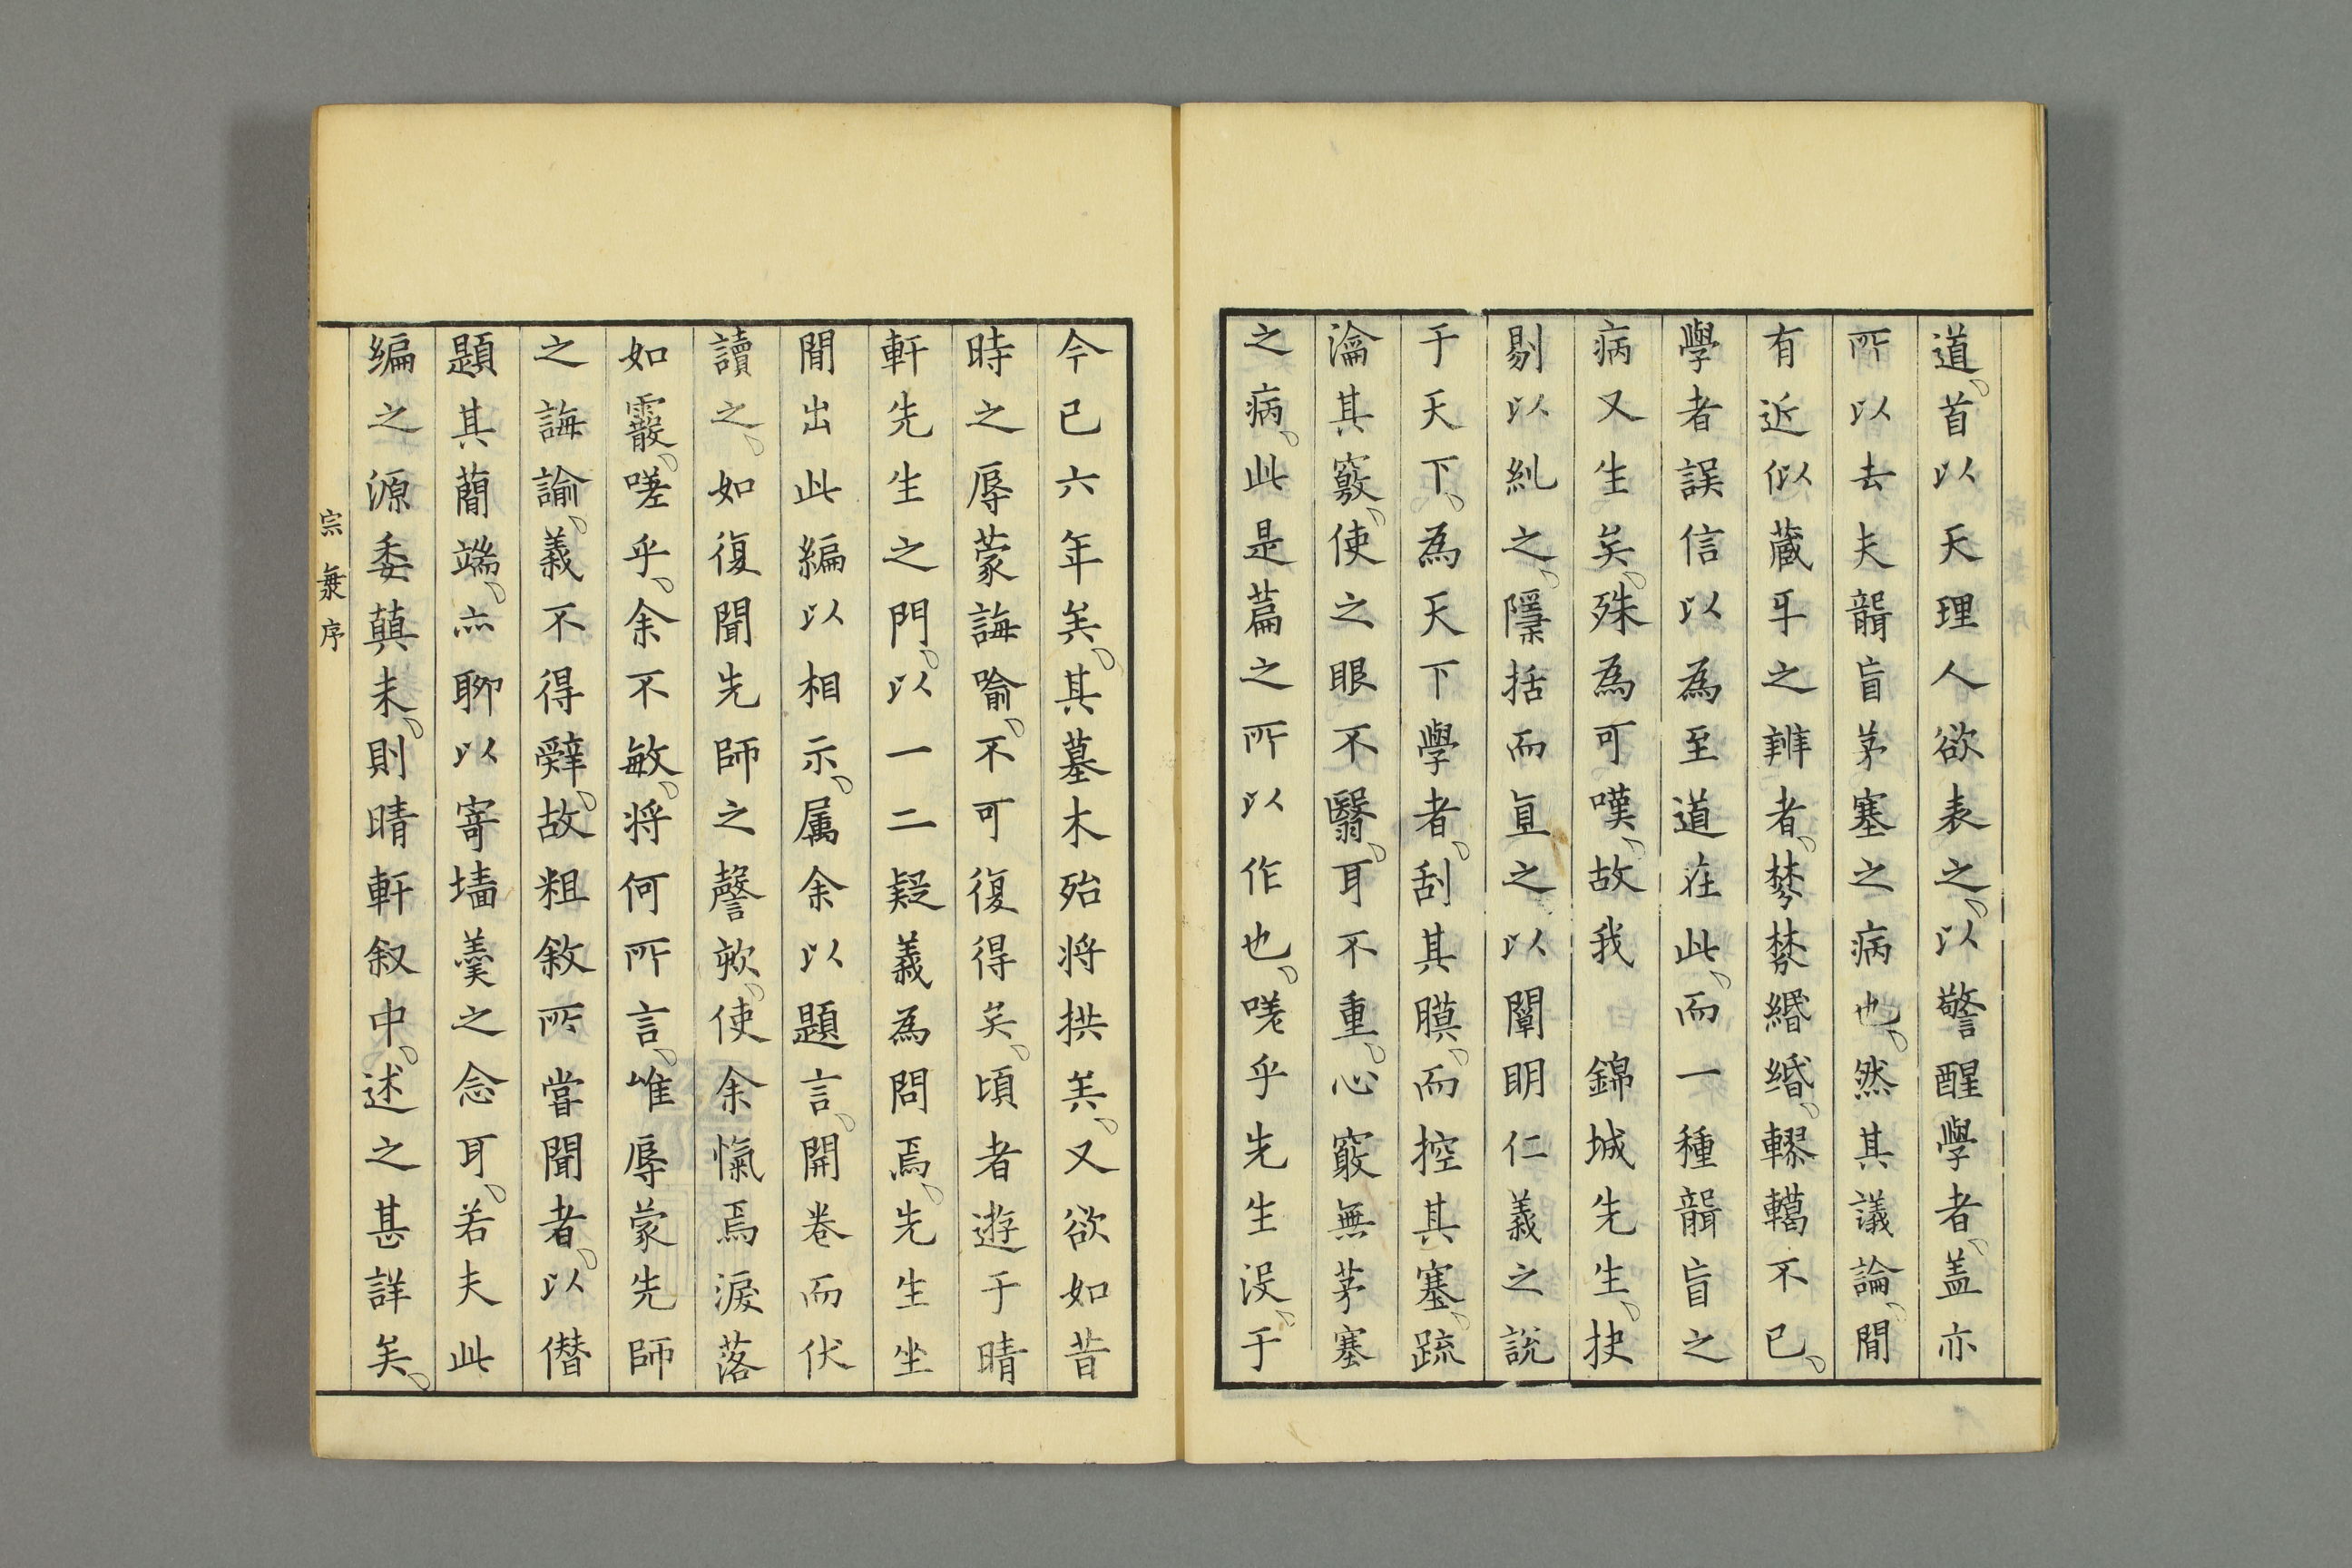 道、首以天理人欲表之、以警醒學者、盖亦
所以去夫聾盲茅塞之病也、然其議論、間
有近似蔵乎之辨者、棼棼緡緡、轇轕不已、
學者誤信以為至道在此、而一種聾盲之
病又生矣、殊為可嘆、故我　錦城先生、抉
剔以糺之、隱括而直之、以闡明仁義之說
于天下、為天下學者、刮其膜、而控其塞、疏
瀹其竅、使之眼不翳、耳不重、心竅無茅塞
之病、此是篇之所以作也、嗟乎先生沒、于
今已六年矣、其墓木殆将拱矣、又欲如昔
時之辱蒙誨喻、不可復得矣、頃者遊于晴
軒先生之門、以一二疑義為問焉、先生坐
間出此編以相示、属余以題言、開巻而伏
讀之、如復聞先師之謦欬、使余愾焉淚落
如霰、嗟乎、余不敏、将何所言、唯辱蒙先師
之誨諭、義不得辤、故粗敘所嘗聞者、以僣
題其蕳端、亦聊以寄墻羹之念耳、若夫此
編之源委蘃末、則晴軒叙中、述之甚詳矣、
宗粲序